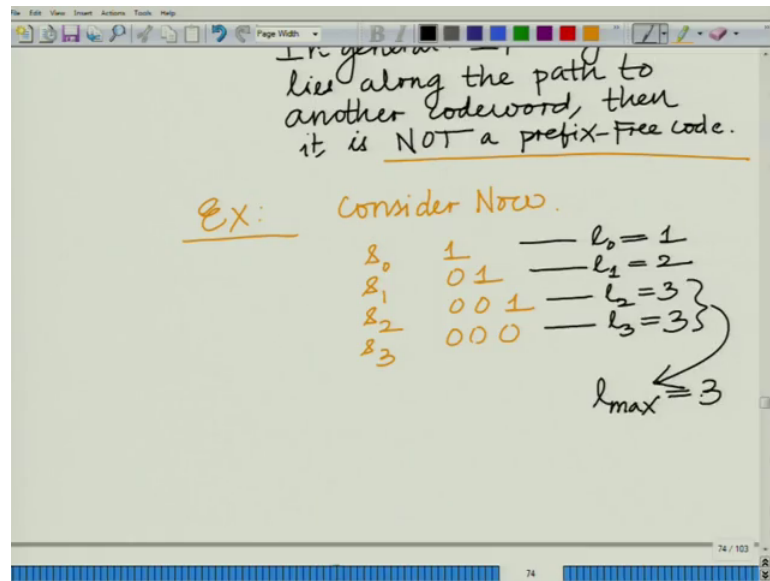 File Edit View Insert Actions Tools Help
Page Width
In general
lies along the path to
another codeword, then
it is NOT a prefix-Free code.
Ex: Consider Now.
s₀ 1 — l₀ = 1
s₁ 01 — l₁ = 2
s₂ 001 — l₂ = 3
s₃ 000 — l₃ = 3
lmax = 3
74 / 103
74